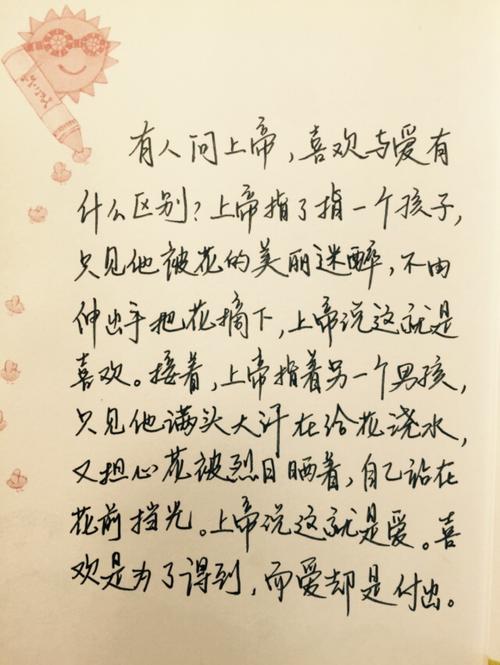 有人问上帝，喜欢与爱有
什么区别？上帝指了指一个孩子，
只见他被花的美丽迷醉，不由
伸出手把花摘下，上帝说这就是
喜欢。接着，上帝指着另一个男孩，
只见他满头大汗在给花浇水，
又担心花被烈日晒着，自己站在
花前挡光。上帝说这就是爱。喜
欢是为了得到，而爱却是付出。